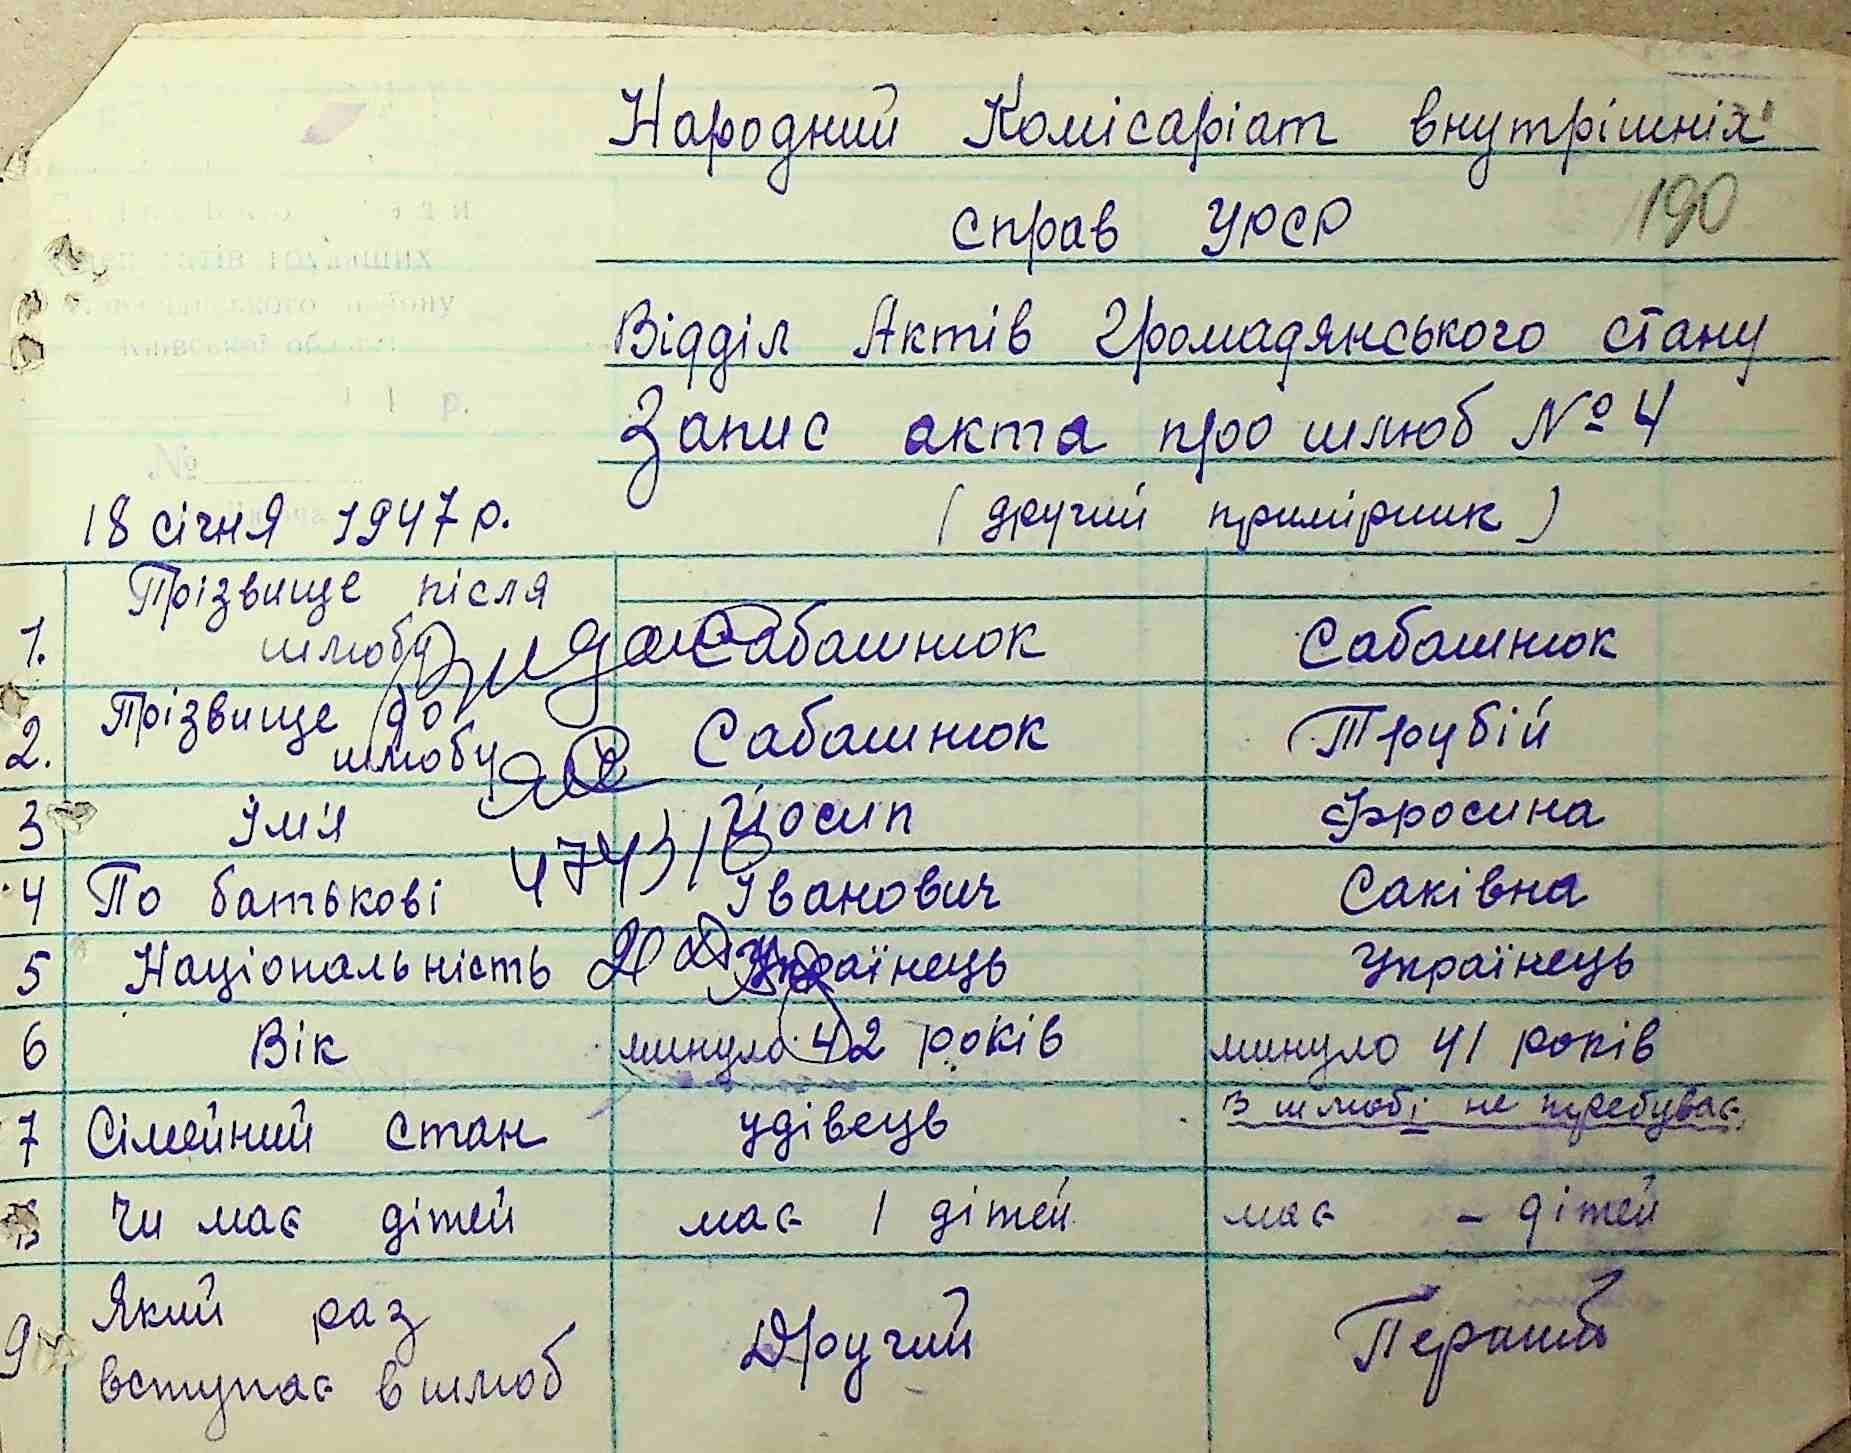 Народний Комісаріат внутрішніх
справ УРСР
190
Відділ Актів Громадянського стану
Запис акта про шлюб № 4
18 січня 1947 р.
(другий примірник)
1. Прізвище після шлюбу Сабашнюк Сабашнюк
2. Прізвище до шлюбу Сабашнюк Трубій
3 Їм'я Йосип Фросина
4 По батькові Іванович Саківна
5 Національність Українець Українець
6 Вік минуло 42 років минуло 41 років
7 Сімейний стан удівець в шлюбі не перебуває
Чи має дітей має 1 дітей має – дітей
9 Який раз вступає в шлюб Другий Перший